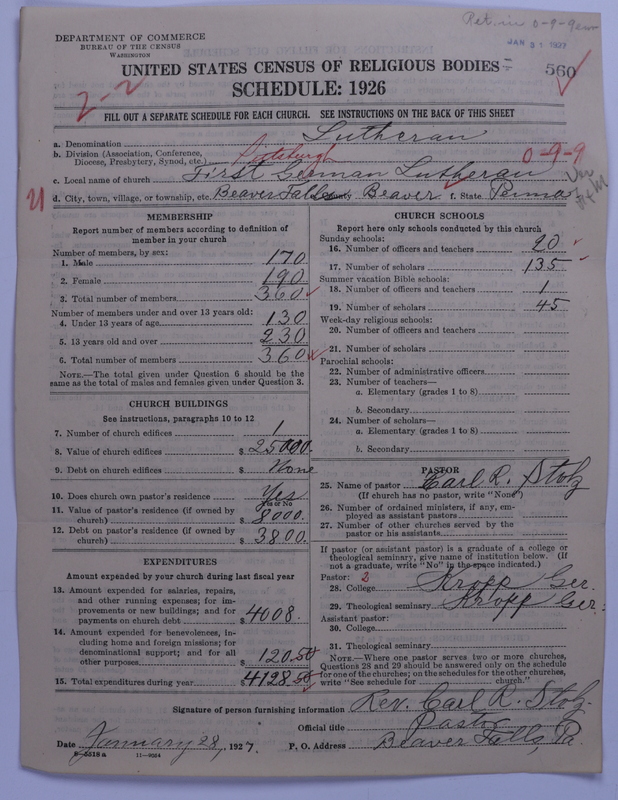 Ret. in 0-9-9
JAN 31 1927
DEPARTMENT OF COMMERCE
BUREAU OF THE CENSUS
WASHINGTON
UNITED STATES CENSUS OF RELIGIOUS BODIES
560
SCHEDULE: 1926
2-2
FILL OUT A SEPARATE SCHEDULE FOR EACH CHURCH. SEE INSTRUCTIONS ON THE BACK OF THIS SHEET
a. Denomination Lutheran
b. Division (Association, Conference, Diocese, Presbytery, Synod, etc.) Pittsburgh 0-9-9
c. Local name of church First German Lutheran
d. City, town, village, or township, etc. Beaver Falls County Beaver f. State Penna
MEMBERSHIP
Report number of members according to definition of member in your church
Number of members, by sex:
1. Male 170
2. Female 190
3. Total number of members 360
Number of members under and over 13 years old:
4. Under 13 years of age 130
5. 13 years old and over 230
6. Total number of members 360
NOTE.—The total given under Question 6 should be the same as the total of males and females given under Question 3.
CHURCH BUILDINGS
See instructions, paragraphs 10 to 12
7. Number of church edifices 1
8. Value of church edifices $ 25000.
9. Debt on church edifices $ None
10. Does church own pastor's residence Yes
Yes or No
11. Value of pastor's residence (if owned by church) $ 8000.
12. Debt on pastor's residence (if owned by church) $ 3800.
EXPENDITURES
Amount expended by your church during last fiscal year
13. Amount expended for salaries, repairs, and other running expenses; for improvements or new buildings; and for payments on church debt $ 4008.
14. Amount expended for benevolences, including home and foreign missions; for denominational support; and for all other purposes $ 120.50
15. Total expenditures during year $ 4128.50
CHURCH SCHOOLS
Report here only schools conducted by this church
Sunday schools:
16. Number of officers and teachers 20
17. Number of scholars 135
Summer vacation Bible schools:
18. Number of officers and teachers 1
19. Number of scholars 45
Week-day religious schools:
20. Number of officers and teachers
21. Number of scholars
Parochial schools:
22. Number of administrative officers
23. Number of teachers—
a. Elementary (grades 1 to 8)
b. Secondary
24. Number of scholars—
a. Elementary (grades 1 to 8)
b. Secondary
PASTOR
25. Name of pastor Carl R. Stolz
(If church has no pastor, write "None")
26. Number of ordained ministers, if any, employed as assistant pastors
27. Number of other churches served by the pastor or his assistants
If pastor (or assistant pastor) is a graduate of a college or theological seminary, give name of institution below. (If not a graduate, write "No" in the space indicated.)
Pastor: 2
28. College Kropp Ger.
29. Theological seminary Kropp Ger.
Assistant pastor:
30. College
31. Theological seminary
NOTE.—Where one pastor serves two or more churches, Questions 28 and 29 should be answered only on the schedule for one of the churches; on the schedules for the other churches, write "See schedule for church."
Signature of person furnishing information Rev. Carl R. Stolz
Official title Pastor
Date January 28, 1927. P. O. Address Beaver Falls, Pa.
8-5518 a 11-9024